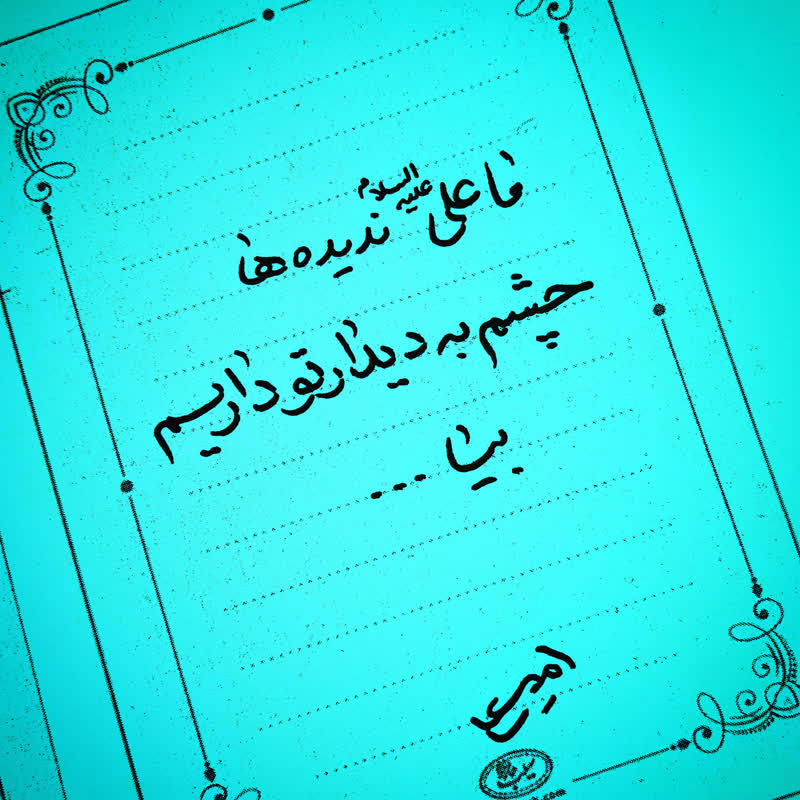 ما علی علیه السلام ندیده ها
چشم به دیدار تو داریم
بیا ...
.com